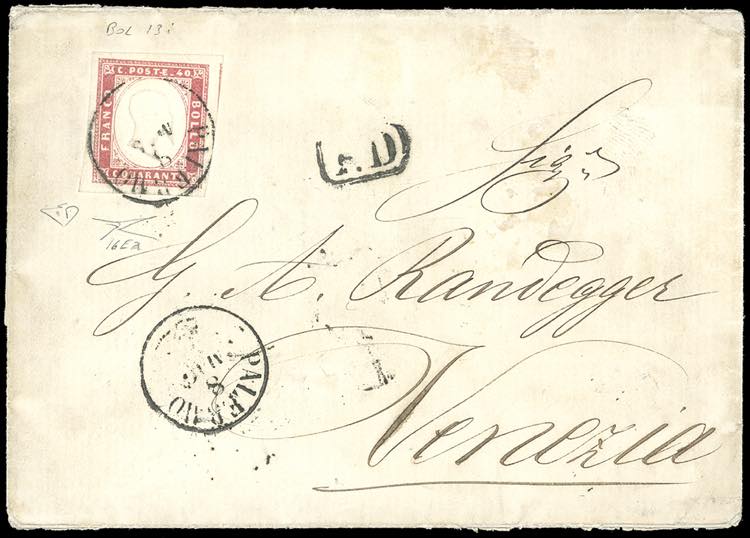 BOL 13i
C. POSTE. 40
FRANCO
BOLLO
C. QUARANTA
P.D
Sigr
16Ea
G. A. Randegger
PALERMO
8
Venezia